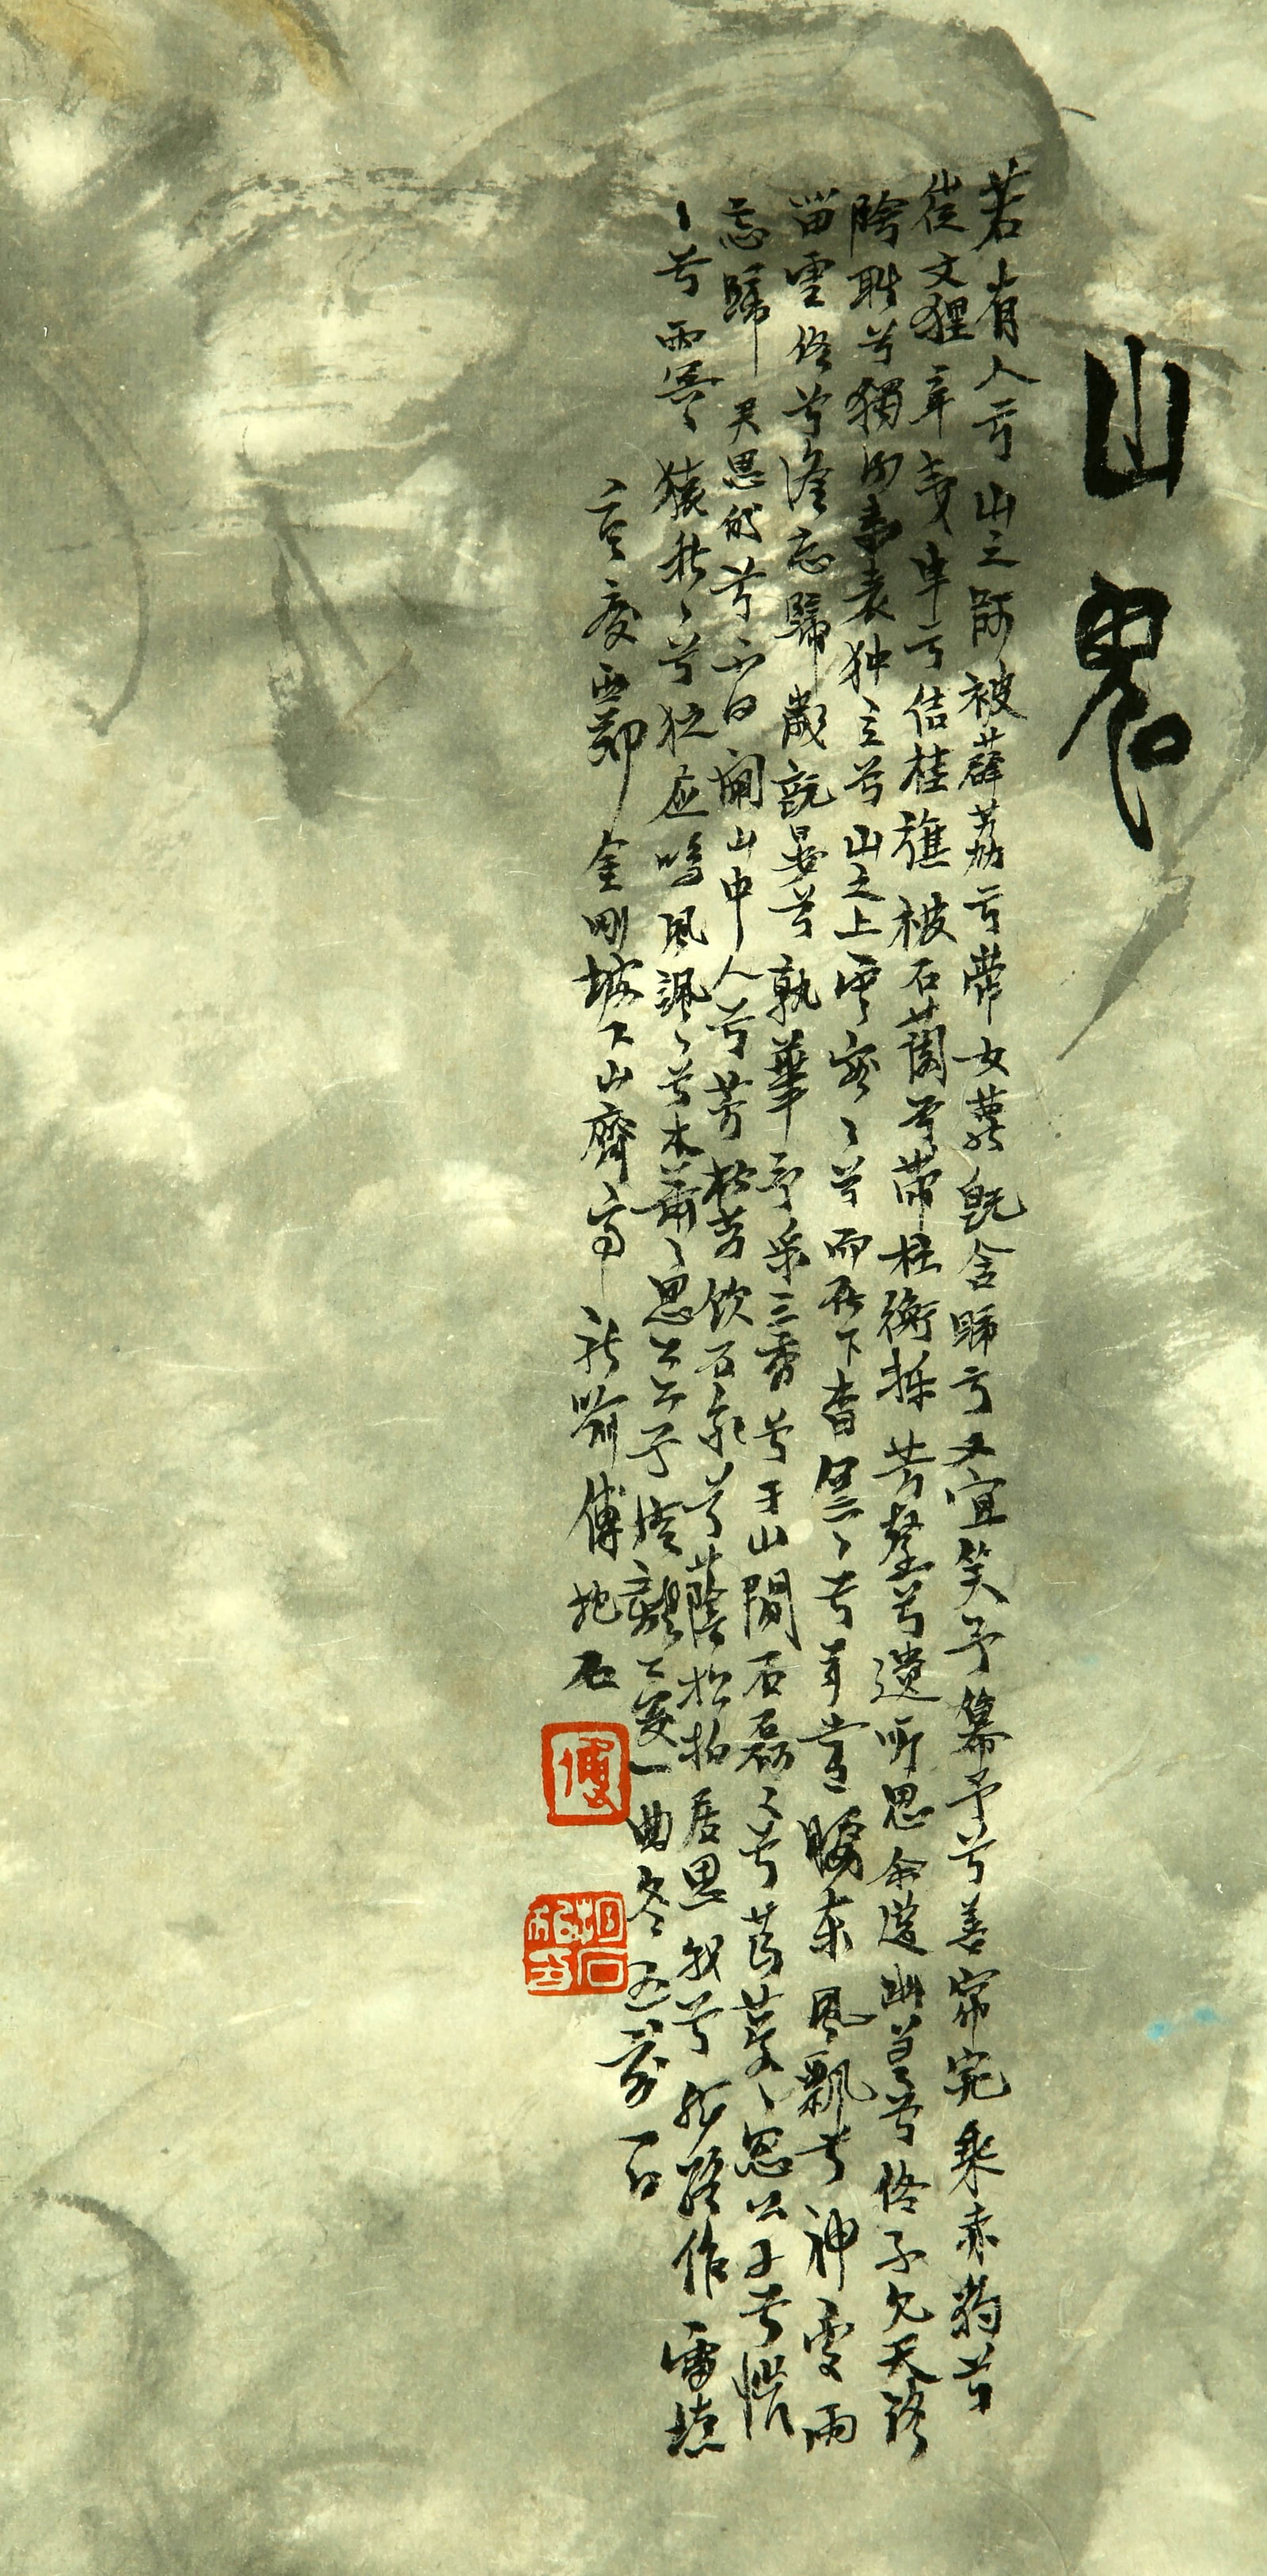 山鬼
若有人兮山之阿被薜荔兮帶女蘿既含睇兮又宜笑予慕予兮善窈窕乘赤豹兮
從文狸辛夷車兮結桂旗被石蘭兮帶杜衡採芳馨兮遺所思余處幽篁兮終不見天路
險難兮獨後來表独立兮山之上雲容〻兮而在下杳冥〻兮羌晝晦東風飄兮神靈雨
留靈修兮憺忘歸歲既晏兮孰華予采三秀兮于山間石磊〻兮葛蔓〻思公子兮悵
忘歸君思我兮不得閒山中人兮芳杜若饮石泉兮蔭松柏君思我兮然疑作雷填
〻兮雨冥〻猿啾〻兮狖夜鳴風颯〻兮木蕭〻思公子兮徒離憂一曲冬至前一日
重慶西郊金剛坡下山齋寫新喻傅抱石
傅
抱石私印